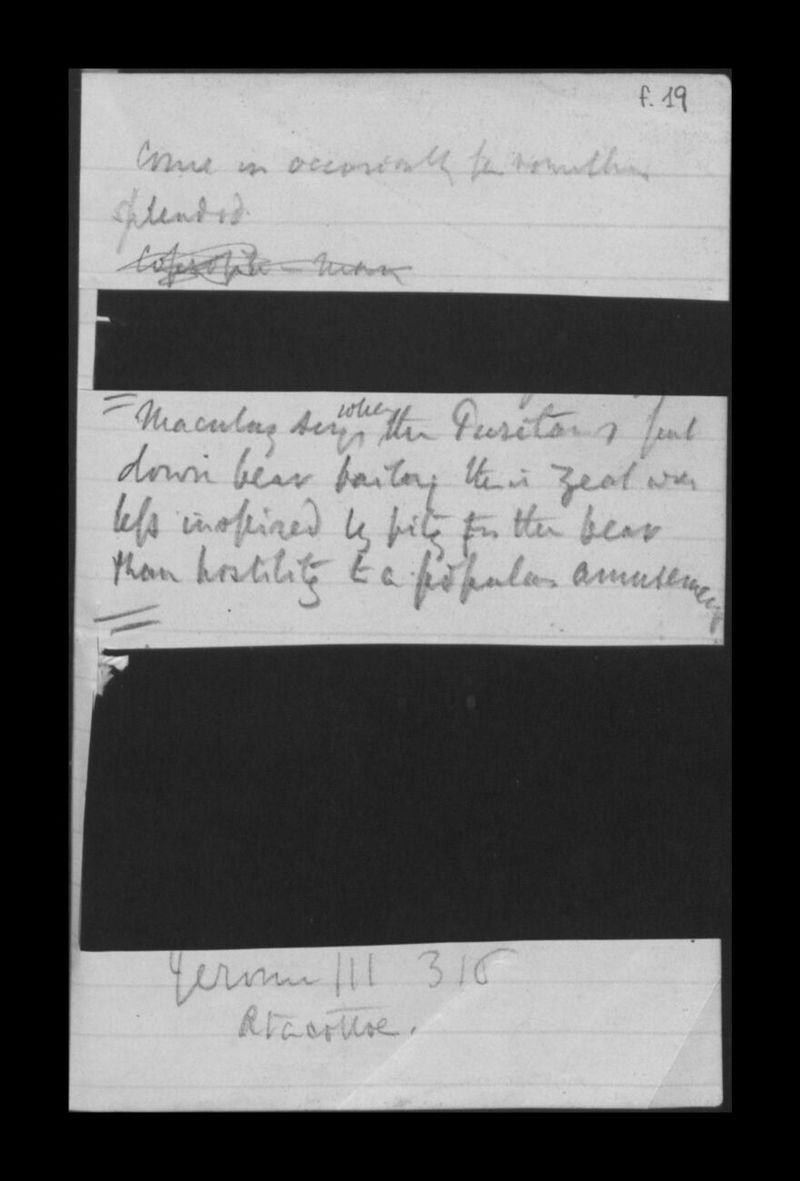 f. 19
Come in occasionally for something
splendid
Macaulay says when the Puritans put
down bear baiting their zeal was
less inspired by pity for the bear
than hostility to a popular amusement
Jerome III 316
Atacottoe.